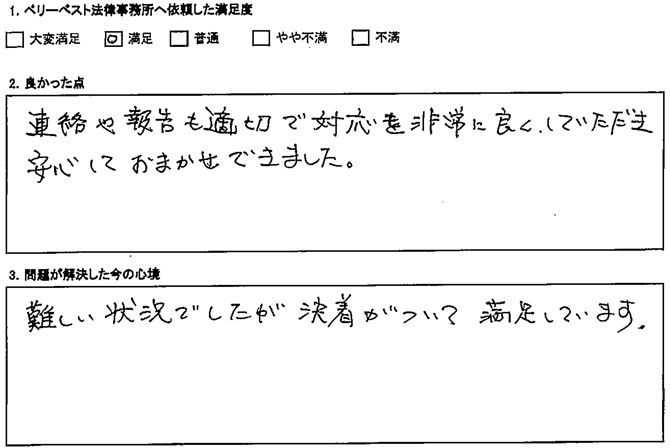 1. ベリーベスト法律事務所へ依頼した満足度
大変満足 満足 普通 やや不満 不満
2. 良かった点
連絡や報告も適切で対応を非常に良くしていただき
安心しておまかせできました。
3. 問題が解決した今の心境
難しい状況でしたが決着がついて満足しています。